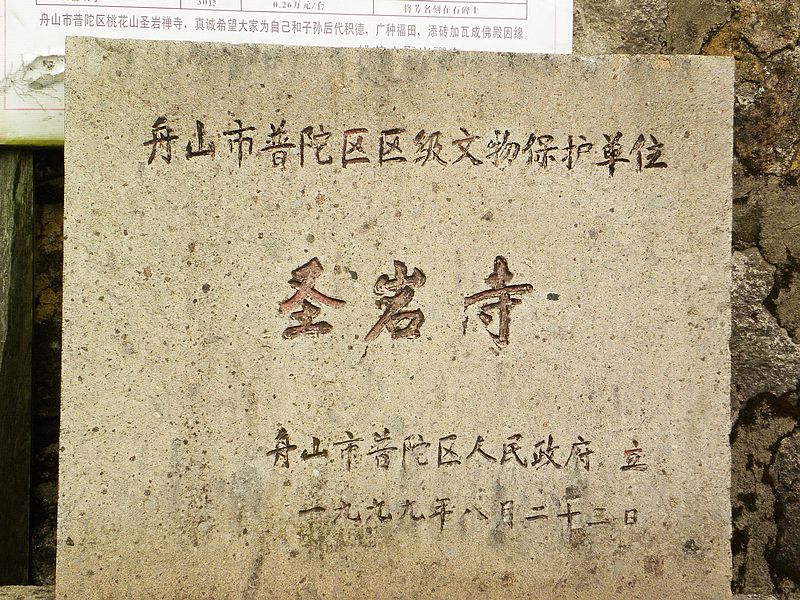 30套 0.26万元/套 将芳名刻在石碑上
舟山市普陀区桃花山圣岩禅寺、真诚希望大家为自己和子孙后代积德、广种福田、添砖加瓦成佛殿因缘。
舟山市普陀区区级文物保护单位
圣岩寺
舟山市普陀区人民政府 立
一九九九年八月二十三日